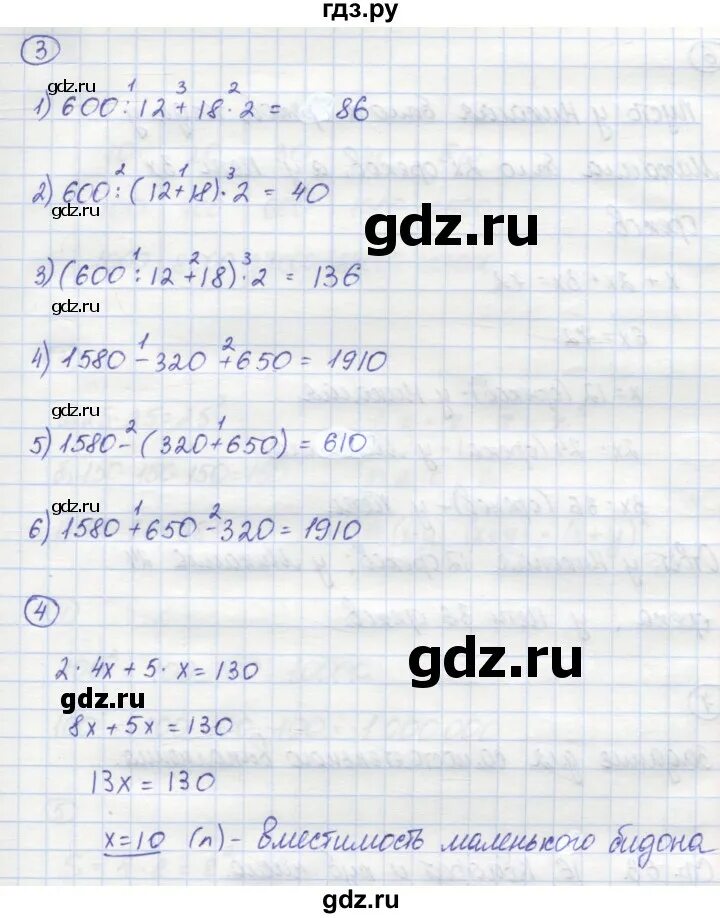 гдз.ру
3
gdz.ru
1 3 2
1) 600 : 12 + 18 · 2 = 86
2 1 3
2) 600 : (12 + 18) · 2 = 40
gdz.ru
gdz.ru
1 2 3
3) (600 : 12 + 18) · 2 = 136
gdz.ru
1 2
4) 1580 - 320 + 650 = 1910
gdz.ru
2 1
5) 1580 - (320 + 650) = 610
gdz.ru
1 2
6) 1580 + 650 - 320 = 1910
4
gdz.ru
2 · 4x + 5 · x = 130
gdz.ru
8x + 5x = 130
13x = 130
x = 10 (л) - вместимость маленького бидона
gdz.ru